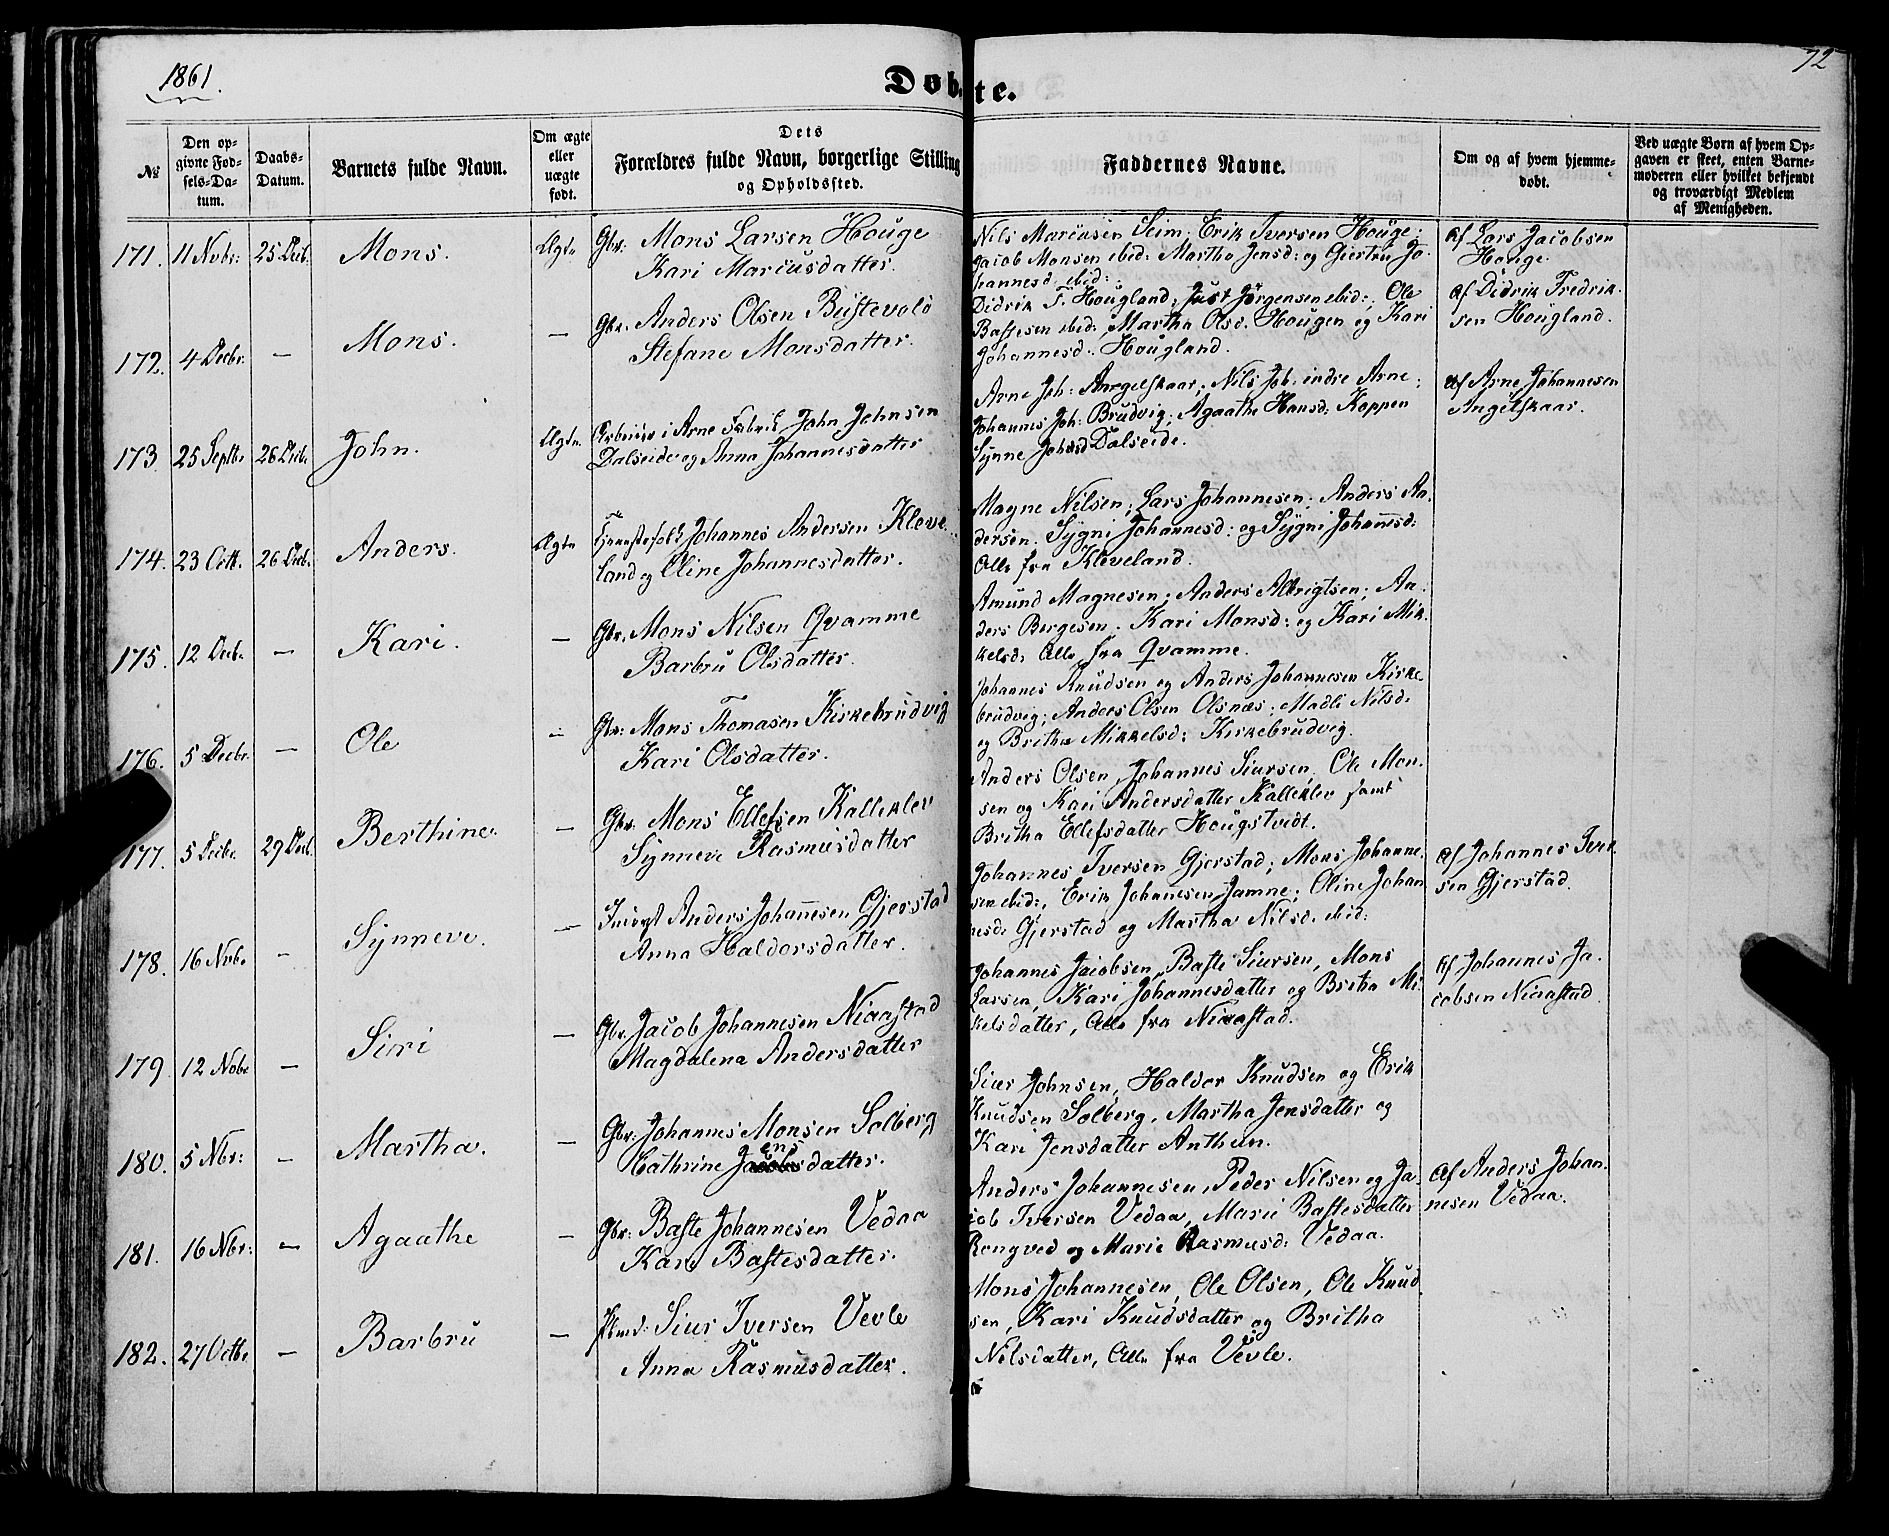 1861.
72
Døbte.
№
Den op-
givne Fød-
sels-Da-
tum.
Daabs-
Datum.
Barnets fulde Navn.
Om ægte
eller
uægte
født.
Dets
Forældres fulde Navn, borgerlige Stilling
og Opholdssted.
Faddernes Navne.
Om og af hvem hjemme-
døbt.
Ved uægte Børn af hvem Op-
gaven er skeet, enten Barne-
moderen eller hvilket bekjendt
og troværdigt Medlem
af Menigheden.
171. 11 Novbr: 25 Decb. Mons. Ægte Gbr. Mons Larsen Houge
Kari Marcusdatter.
Nils Marcusen Seim; Erik Iversen Houge;
Jacob Monsen ibid: Martha Jensd: og Gjertru Jo-
hannesd. ibid:
Af Lars Jacobsen
Houge.
172. 4 Decbr. — Mons. — Gbr. Anders Olsen Bustevold
Stefane Monsdatter.
Didrik F. Hougland; Just Jørgensen ibid:; Ole
Bastesen ibid; Martha Olsd. Hougen og Kari
Johannesd. Hougland.
Af Didrik Fredrik-
sen Hougland.
173. 25 Septbr 26 Decb. John. Ægte Arbeider i Arne Fabrik John Johnsen
Dalseide og Anna Johannesdatter
Arne Joh: Angelskaar; Nils Joh. indre Arne;
Johannes Joh: Brudvig; Agaathe Hansd: Koppen
Synne Johsd Dalseide.
Af Arne Johannesen
Angelskaar.
174. 23 Octb. 26 Decb. Anders. Ægte Tjenestefolk Johannes Andersen Kleve-
land og Eline Johannesdatter.
Magne Nilsen; Lars Johannesen; Anders An-
dersen. Sygni Johannesd: og Sygni Johannesd:
Alle fra Kleveland.
175. 12 Decbr. — Kari. — Gbr. Mons Nilsen Qvamme
Barbru Olsdatter.
Amund Magnesen; Anders Albrigtsen; An-
ders Bergesen. Kari Monsd: og Kari Mik-
kelsd: Alle fra Qvamme.
176. 5 Decbr. — Ole — Gbr: Mons Thomasen Kirkebrudvig
Kari Olsdatter.
Johannes Knudsen og Anders Johannesen Kirke-
brudvig; Anders Olsen Olsnæs; Madli Nilsd.
og Britha Mikkelsd: Kirkebrudvig.
177. 5 Decbr. 29 Decb. Berthine. — Gbr. Mons Ellefsen Kalleklev
Synneve Rasmusdatter
Anders Olsen, Johannes Siursen, Ole Mon-
sen og Kari Andersdatter Kalleklev samt
Britha Ellefsdatter Hougstvedt.
178. 16 Nvbr. — Synneve. — Inderst Anders Johannesen Gjerstad
Anna Haldorsdatter.
Johannes Iversen Gjerstad; Mons Johanne-
sen ibid:, Erik Johannesen Jamne; Oline Johan-
nesd: Gjerstad og Martha Nilsd. ibid:
Af Johannes Iver-
sen Gjerstad.
179. 12 Nvbr — Siri — Gbr. Jacob Johannesen Niaastad
Magdalena Andersdatter
Johannes Jacobsen, Baste Siursen, Mons
Larsen, Kari Johannesdatter og Britha Mi-
kelsdatter, Alle fra Niaastad.
Af Johannes Ja-
cobsen Niaastad.
180. 5 Nbr: — Martha. — Gbr: Johannes Monsen Solberg
Cathrine Jensdatter.
Siur Johnsen, Haldor Knudsen og Erik
Knudsen Solberg, Martha Jensdatter og
Kari Jensdatter Anthun.
181. 16 Nbr: — Agaathe — Gbr: Baste Johannesen Vedaa
Kari Bastesdatter.
Anders Johannesen, Peder Nilsen og Ja-
cob Iversen Vedaa, Marie Bastesdatter
Rongved og Marie Rasmusd: Vedaa.
Af Anders Johan-
nesen Vedaa.
182. 27 Octbr — Barbru — Siur Iversen Vevle
Anna Rasmusdatter.
Mons Johannesen, Ole Olsen, Ole Knud-
sen, Kari Knudsdatter og Britha
Nilsdatter, Alle fra Vevle.